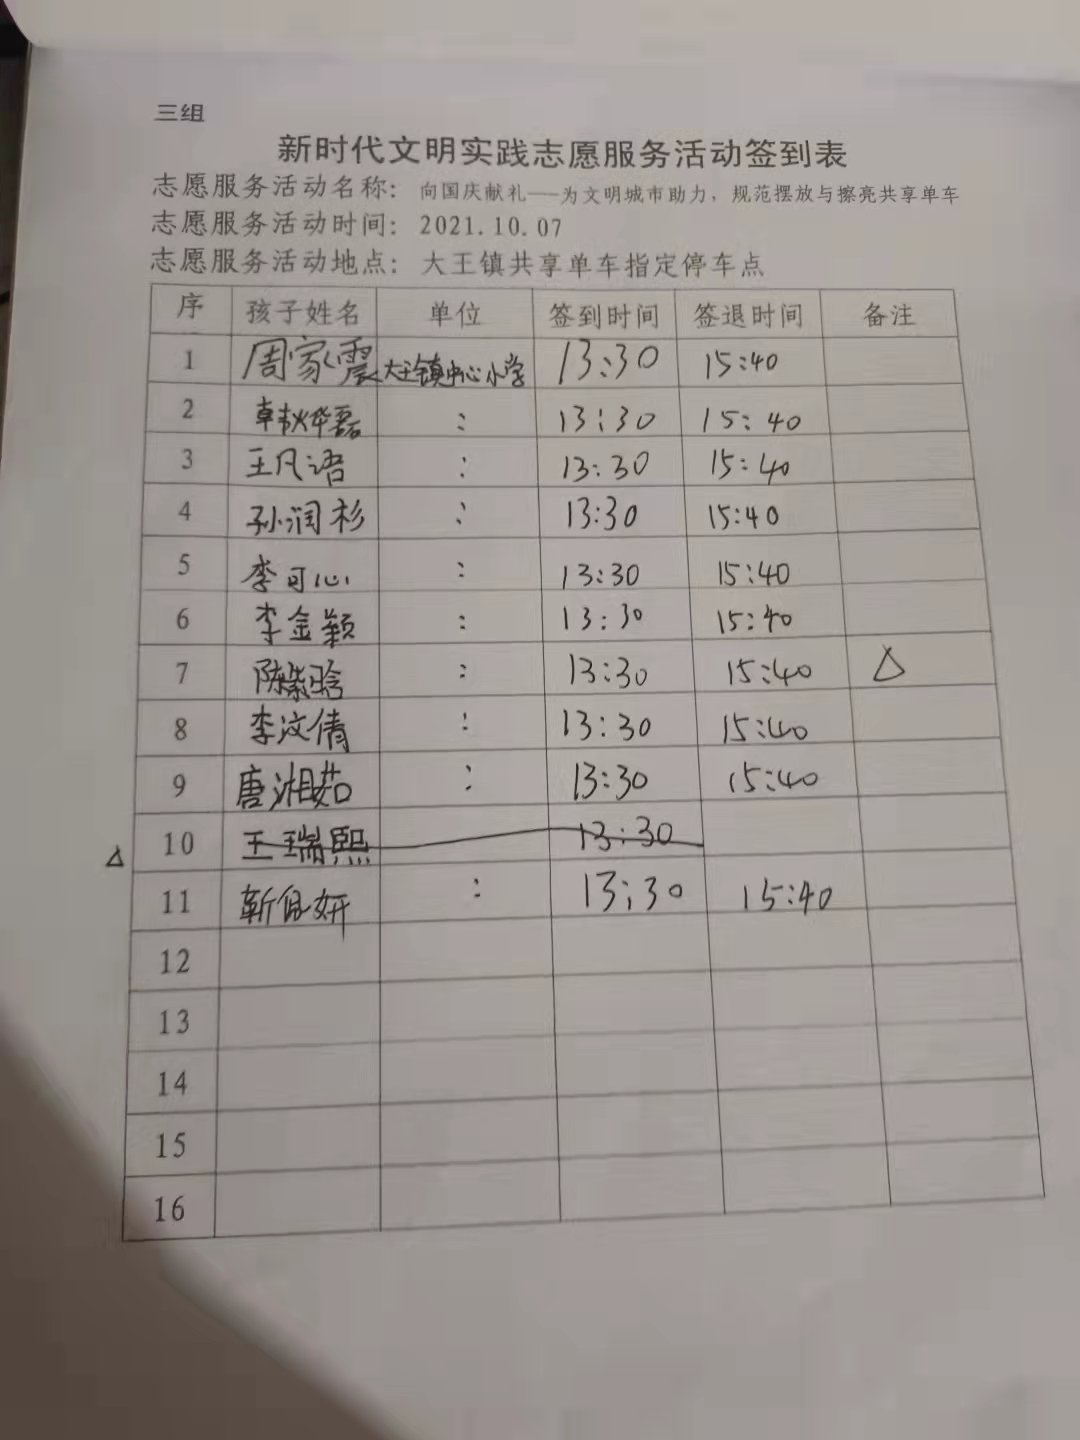 三组
新时代文明实践志愿服务活动签到表
志愿服务活动名称：向国庆献礼——为文明城市助力，规范摆放与擦亮共享单车
志愿服务活动时间：2021.10.07
志愿服务活动地点：大王镇共享单车指定停车点
序 孩子姓名 单位 签到时间 签退时间 备注
1 周家震 大王镇中心小学 13:30 15:40
2 : 13:30 15:40
3 王凡语 : 13:30 15:40
4 孙润杉 : 13:30 15:40
5 李可心 : 13:30 15:40
6 李金颖 : 13:30 15:40
7 陈紫晗 : 13:30 15:40 △
8 李汶倩 : 13:30 15:40
9 唐湘茹 : 13:30 15:40
△ 10 王瑞熙 13:30
11 : 13:30 15:40
12
13
14
15
16